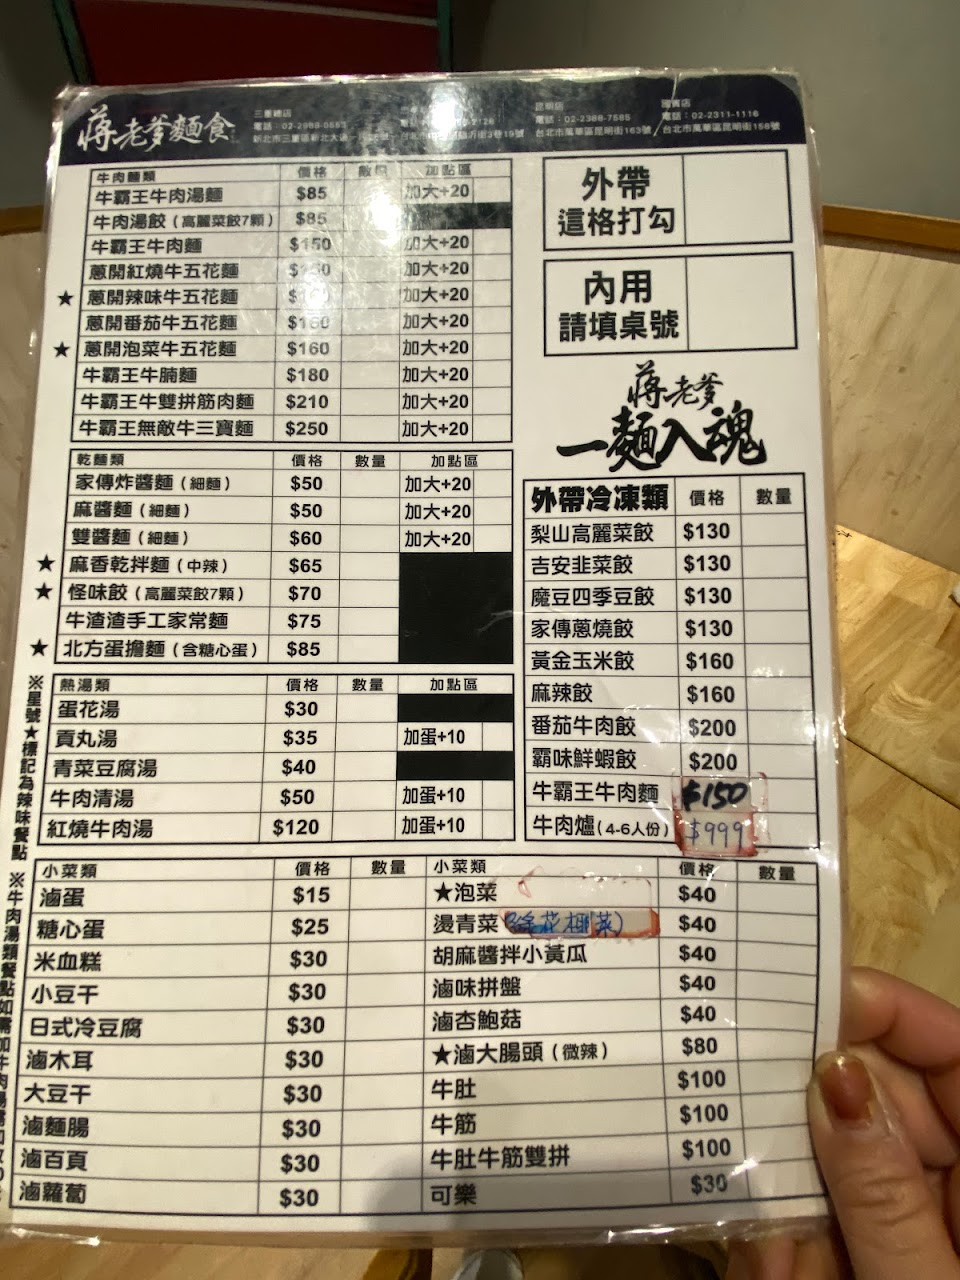 蔣老爹麵食
三重總店
電話：02-2989-0553
昆明店
電話：02-2388-7585
台北市萬華區昆明街163號
國賓店
電話：02-2311-1116
台北市萬華區昆明街156號
牛肉麵類 價格 數量 加點區
牛霸王牛肉湯麵 $85 加大+20
牛肉湯餃（高麗菜餃7顆） $85
牛霸王牛肉麵 $150 加大+20
蔥開紅燒牛五花麵 加大+20
★ 蔥開辣味牛五花麵 加大+20
蔥開番茄牛五花麵 $160 加大+20
★ 蔥開泡菜牛五花麵 $160 加大+20
牛霸王牛腩麵 $180 加大+20
牛霸王牛雙拼筋肉麵 $210 加大+20
牛霸王無敵牛三寶麵 $250 加大+20
乾麵類 價格 數量 加點區
家傳炸醬麵（細麵） $50 加大+20
麻醬麵（細麵） $50 加大+20
雙醬麵（細麵） $60 加大+20
★ 麻香乾拌麵（中辣） $65
★ 怪味餃（高麗菜餃7顆） $70
牛渣渣手工家常麵 $75
★ 北方蛋擔麵（含糖心蛋） $85
熱湯類 價格 數量 加點區
蛋花湯 $30
貢丸湯 $35 加蛋+10
青菜豆腐湯 $40
牛肉清湯 $50 加蛋+10
紅燒牛肉湯 $120 加蛋+10
※星號★標記為辣味餐點
※牛肉湯類餐點如需加牛肉湯
外帶
這格打勾
內用
請填桌號
蔣老爹
一麵入魂
外帶冷凍類 價格 數量
梨山高麗菜餃 $130
吉安韭菜餃 $130
魔豆四季豆餃 $130
家傳蔥燒餃 $130
黃金玉米餃 $160
麻辣餃 $160
番茄牛肉餃 $200
霸味鮮蝦餃 $200
牛霸王牛肉麵 $150
牛肉爐（4-6人份） $999
小菜類 價格 數量
滷蛋 $15
糖心蛋 $25
米血糕 $30
小豆干 $30
日式冷豆腐 $30
滷木耳 $30
大豆干 $30
滷麵腸 $30
滷百頁 $30
滷蘿蔔 $30
小菜類 價格 數量
★泡菜 $40
燙青菜 $40
胡麻醬拌小黃瓜 $40
滷味拼盤 $40
滷杏鮑菇 $40
★滷大腸頭（微辣） $80
牛肚 $100
牛筋 $100
牛肚牛筋雙拼 $100
可樂 $30